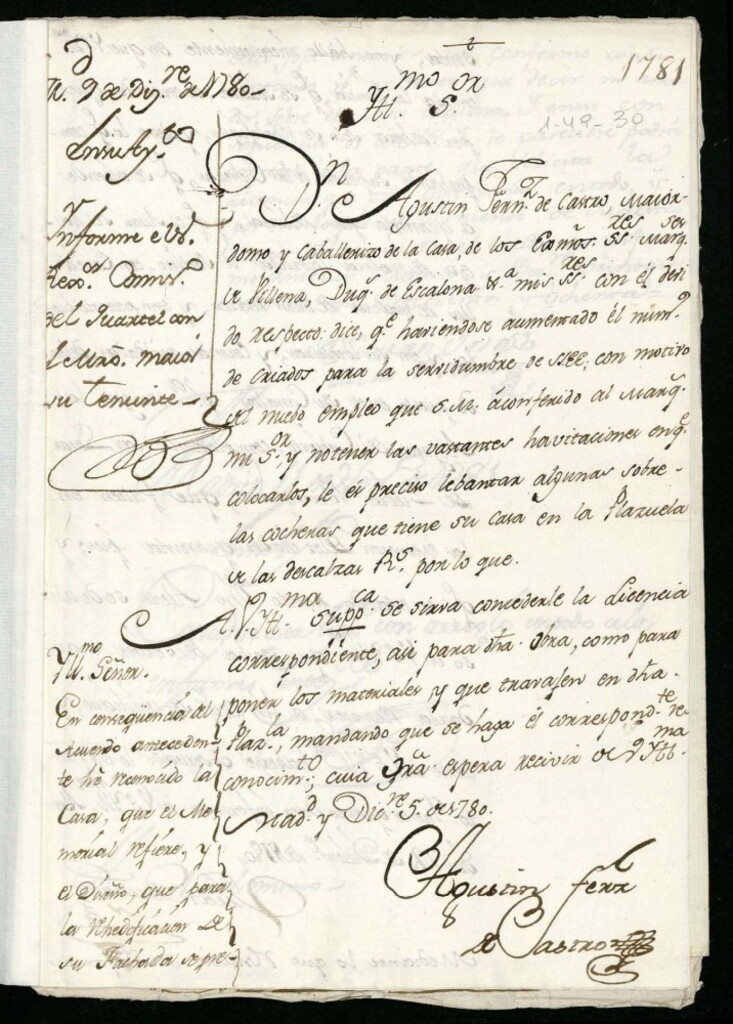 1781
1-49-30
M.d 9 de Diz.re de 1780
En su Ay.to
Ynforme el S.r
Rex.or Comis.o
del Quartel con
el Mro. maior
su teniente
Yll.mo S.or
D.n Agustin Fern.z de Castro, Maior-
domo y Caballerizo de la Casa, de los Exômos. SS.res Marq.ses
de Villena, Duq.s de Escalona &.a mis SS.res con el devi-
do, respecto: dice, q.e haviendose aumentado el núm.o
de criados para la servidumbre de S.EE. con motivo
del nuebo empleo que S.M. áconferido al Marq.s
mi S.or y no tener las vastantes havitaciones en q.e
colocarlos, le es preciso lebantar algunas sobre-
las cocheras que tiene su casa en la Plazuela
de las descalzas R.s por lo que.
A. V. Yll.ma supp.ca se sirva concederle la Licencia
correspondiente, asi para dha. Obra, como para
poner los materiales, y que travajen en dha.
Plaz.la, mandando que se haga él correspond.te re-
conocim.to; cuia Gra. espera recivir de V. Yll.ma
Mad.d y Dic.re 5. de 1780.
Agustin Fern.z
de Castro
Yll.mo Señor.
En consequencia al
Acuerdo anteceden-
te hé reconocido la
Casa, que el Me-
morial refiere, y
el Diseño, que para
la Rhedificacion de
su Fachada se pre-